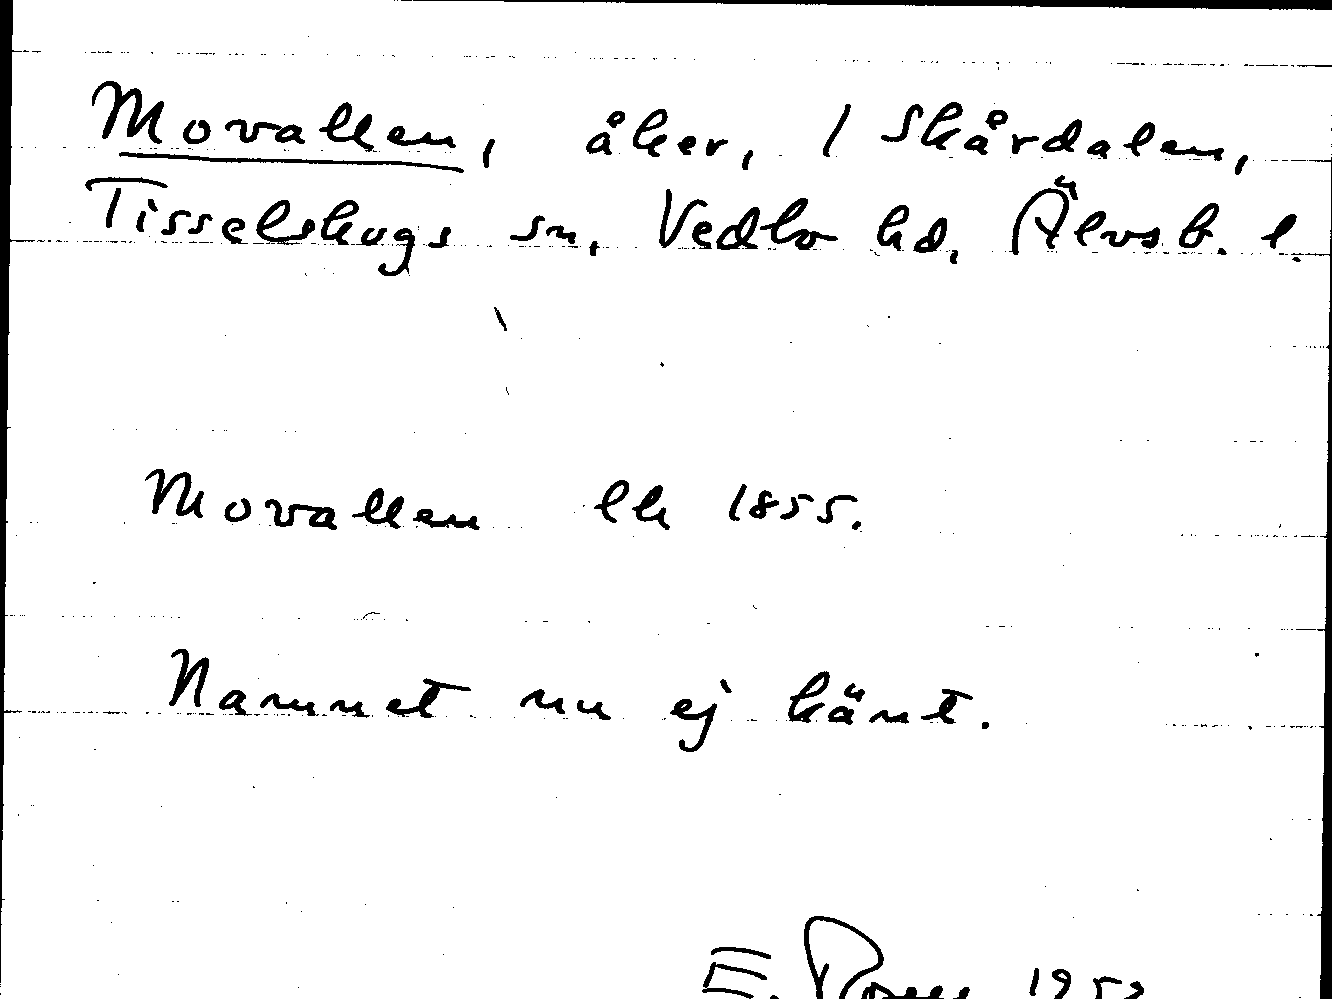 Movallen, åker, 1 Skårdalen,
Tisselskogs sn, Vedbo hd, Älvsb. l.
Movallen lk 1855.
Namnet nu ej känt.
E.